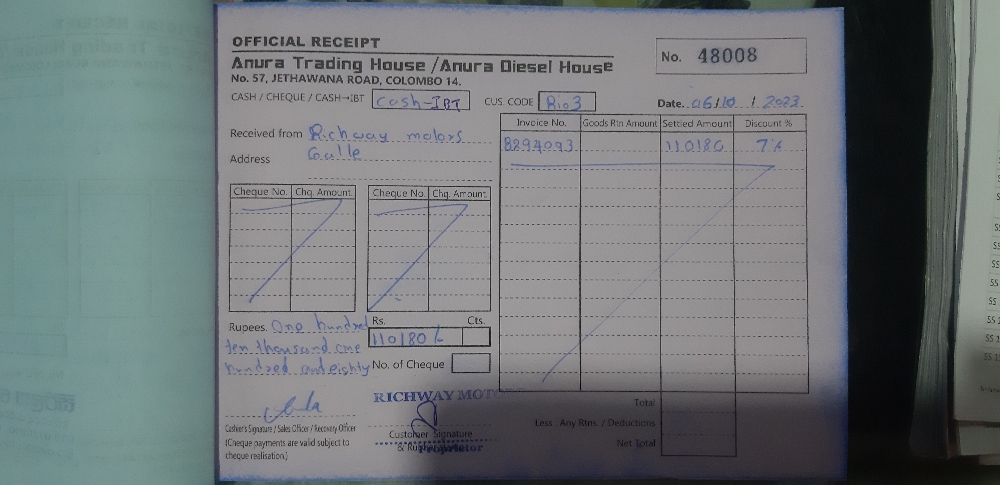 OFFICIAL RECEIPT
Anura Trading House / Anura Diesel House
No. 57, JETHAWANA ROAD, COLOMBO 14.
No. 48008
CASH / CHEQUE / CASH→IBT Cash-IBT CUS. CODE Ri03 Date. 06/10/2023
Received from Richway motors
Address Galle
Invoice No. Goods Rtn Amount Settled Amount Discount %
8294093 110180 7%
Cheque No. Chq. Amount Cheque No. Chq. Amount
Rupees. One hundred
ten thousand one
hundred and eighty
Rs. Cts.
110180/-
No. of Cheque
RICHWAY MOTORS
Cashier's Signature / Sales Officer / Recovery Officer
(Cheque payments are valid subject to
cheque realisation.)
Customer Signature
Proprietor
Total
Less : Any Rtns. / Deductions
Net Total